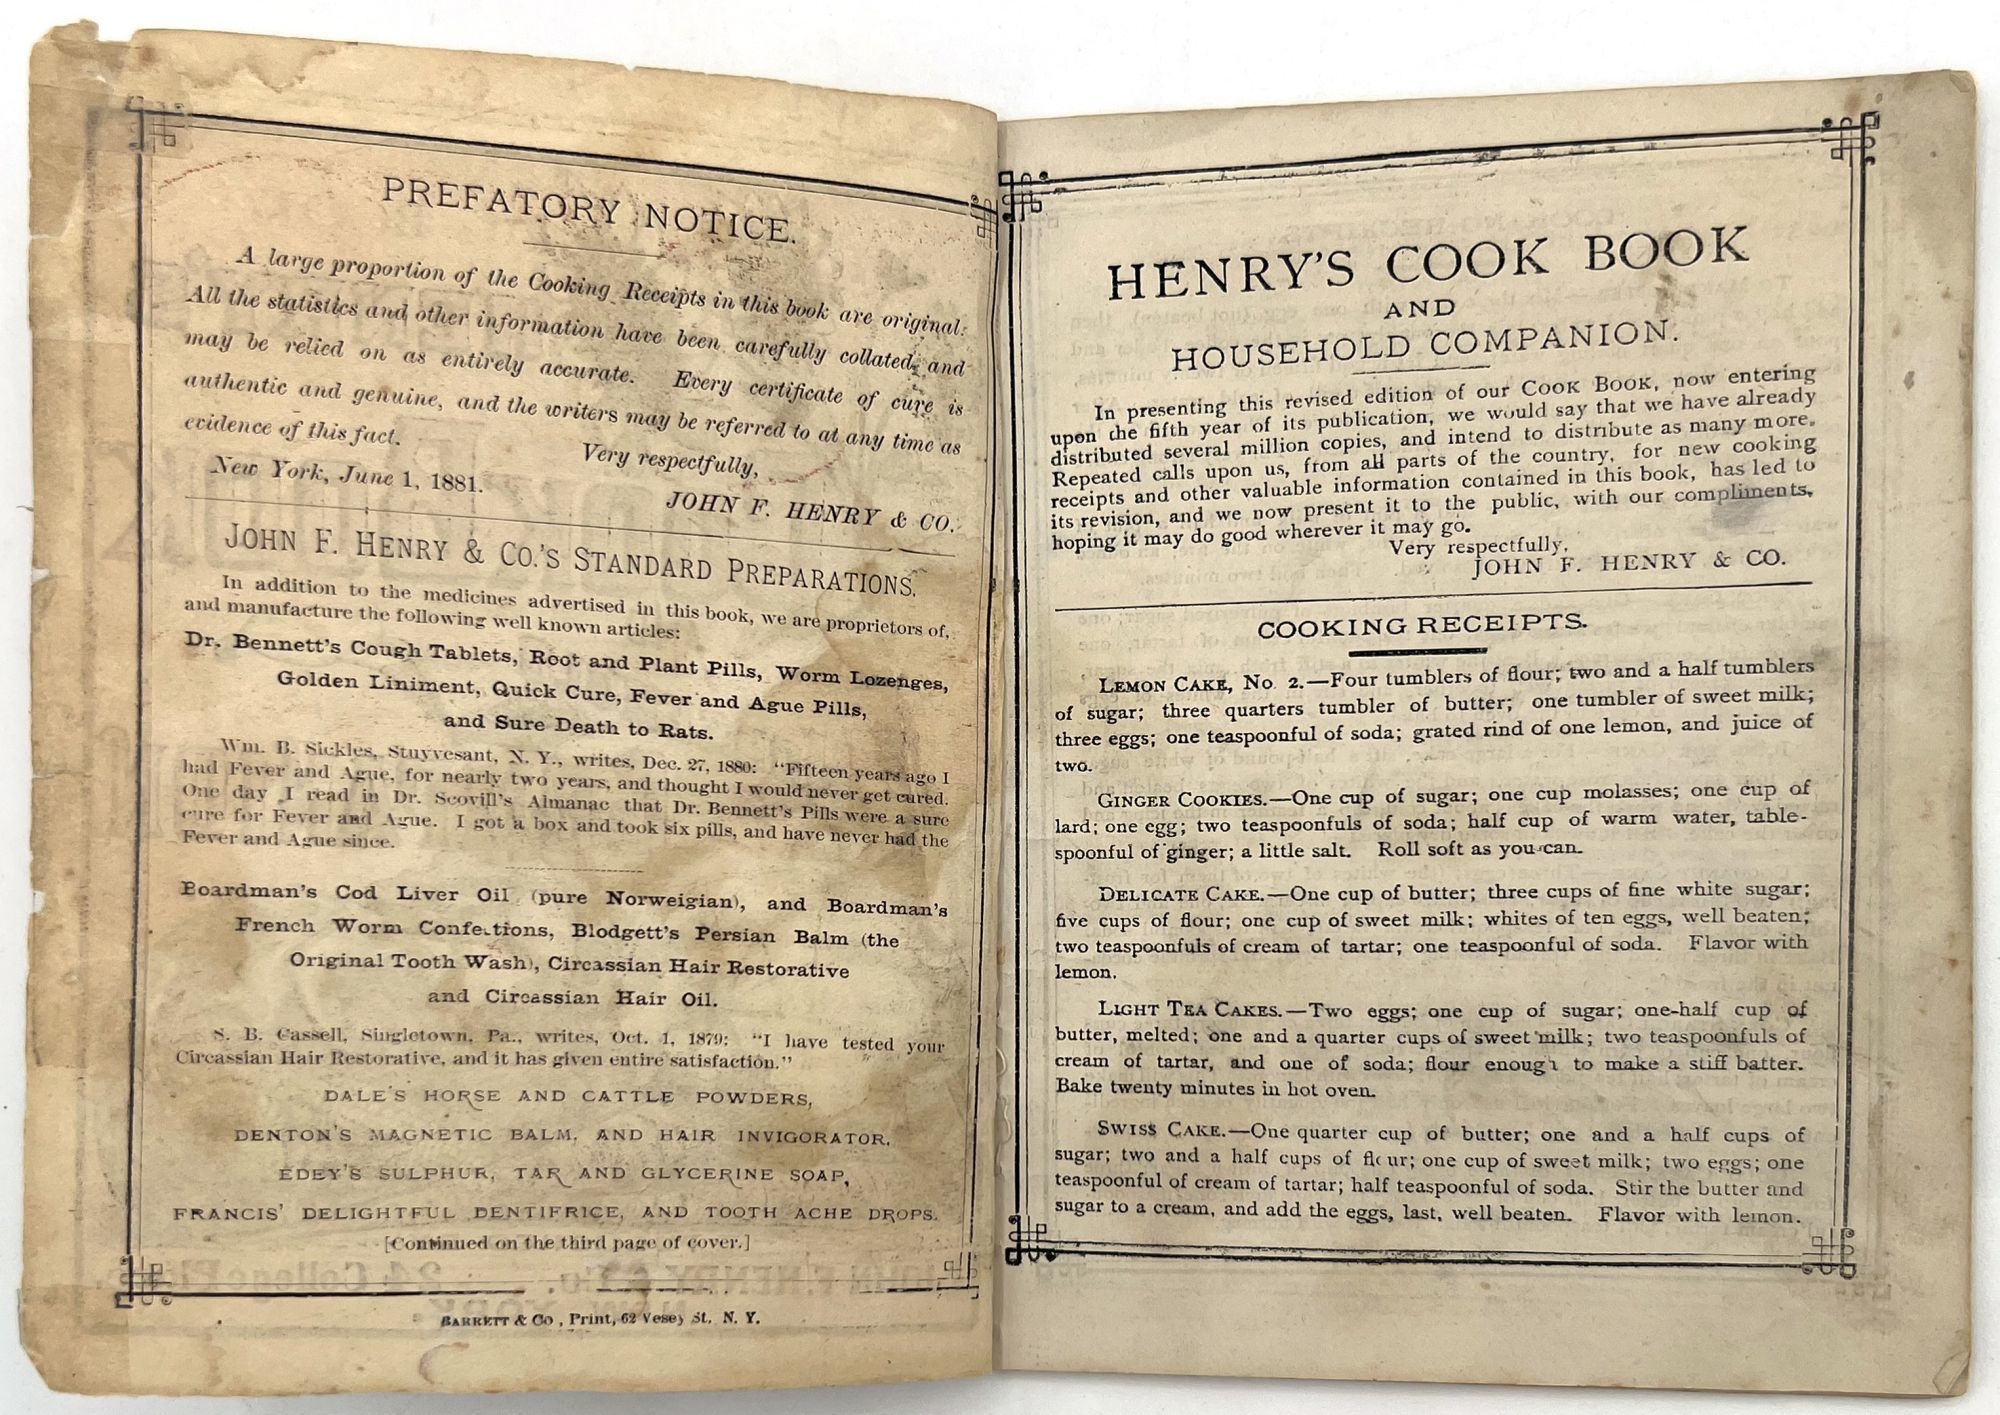 PREFATORY NOTICE.
A large proportion of the Cooking Receipts in this book are original.
All the statistics and other information have been carefully collated, and
may be relied on as entirely accurate. Every certificate of cure is
authentic and genuine, and the writers may be referred to at any time as
evidence of this fact.
Very respectfully,
New York, June 1, 1881.
JOHN F. HENRY & CO.
JOHN F. HENRY & CO.'S STANDARD PREPARATIONS.
In addition to the medicines advertised in this book, we are proprietors of,
and manufacture the following well known articles:
Dr. Bennett's Cough Tablets, Root and Plant Pills, Worm Lozenges,
Golden Liniment, Quick Cure, Fever and Ague Pills,
and Sure Death to Rats.
Wm. B. Sickles, Stuyvesant, N. Y., writes, Dec. 27, 1880: "Fifteen years ago I
had Fever and Ague, for nearly two years, and thought I would never get cured.
One day I read in Dr. Scovill's Almanac that Dr. Bennett's Pills were a sure
cure for Fever and Ague. I got a box and took six pills, and have never had the
Fever and Ague since.
Boardman's Cod Liver Oil (pure Norweigian), and Boardman's
French Worm Confections, Blodgett's Persian Balm (the
Original Tooth Wash), Circassian Hair Restorative
and Circassian Hair Oil.
S. B. Cassell, Singletown, Pa., writes, Oct. 1, 1879: "I have tested your
Circassian Hair Restorative, and it has given entire satisfaction."
DALE'S HORSE AND CATTLE POWDERS,
DENTON'S MAGNETIC BALM, AND HAIR INVIGORATOR,
EDEY'S SULPHUR, TAR AND GLYCERINE SOAP,
FRANCIS' DELIGHTFUL DENTIFRICE, AND TOOTH ACHE DROPS.
[Continued on the third page of cover.]
BARRETT & CO, Print, 62 Vesey St. N. Y.
HENRY'S COOK BOOK
AND
HOUSEHOLD COMPANION.
In presenting this revised edition of our COOK BOOK, now entering
upon the fifth year of its publication, we would say that we have already
distributed several million copies, and intend to distribute as many more.
Repeated calls upon us, from all parts of the country, for new cooking
receipts and other valuable information contained in this book, has led to
its revision, and we now present it to the public, with our compliments,
hoping it may do good wherever it may go.
Very respectfully,
JOHN F. HENRY & CO.
COOKING RECEIPTS.
LEMON CAKE, NO. 2.—Four tumblers of flour; two and a half tumblers
of sugar; three quarters tumbler of butter; one tumbler of sweet milk;
three eggs; one teaspoonful of soda; grated rind of one lemon, and juice of
two.
GINGER COOKIES.—One cup of sugar; one cup molasses; one cup of
lard; one egg; two teaspoonfuls of soda; half cup of warm water, table-
spoonful of ginger; a little salt. Roll soft as you can.
DELICATE CAKE.—One cup of butter; three cups of fine white sugar;
five cups of flour; one cup of sweet milk; whites of ten eggs, well beaten;
two teaspoonfuls of cream of tartar; one teaspoonful of soda. Flavor with
lemon.
LIGHT TEA CAKES.—Two eggs; one cup of sugar; one-half cup of
butter, melted; one and a quarter cups of sweet milk; two teaspoonfuls of
cream of tartar, and one of soda; flour enough to make a stiff batter.
Bake twenty minutes in hot oven.
SWISS CAKE.—One quarter cup of butter; one and a half cups of
sugar; two and a half cups of flour; one cup of sweet milk; two eggs; one
teaspoonful of cream of tartar; half teaspoonful of soda. Stir the butter and
sugar to a cream, and add the eggs, last, well beaten. Flavor with lemon.